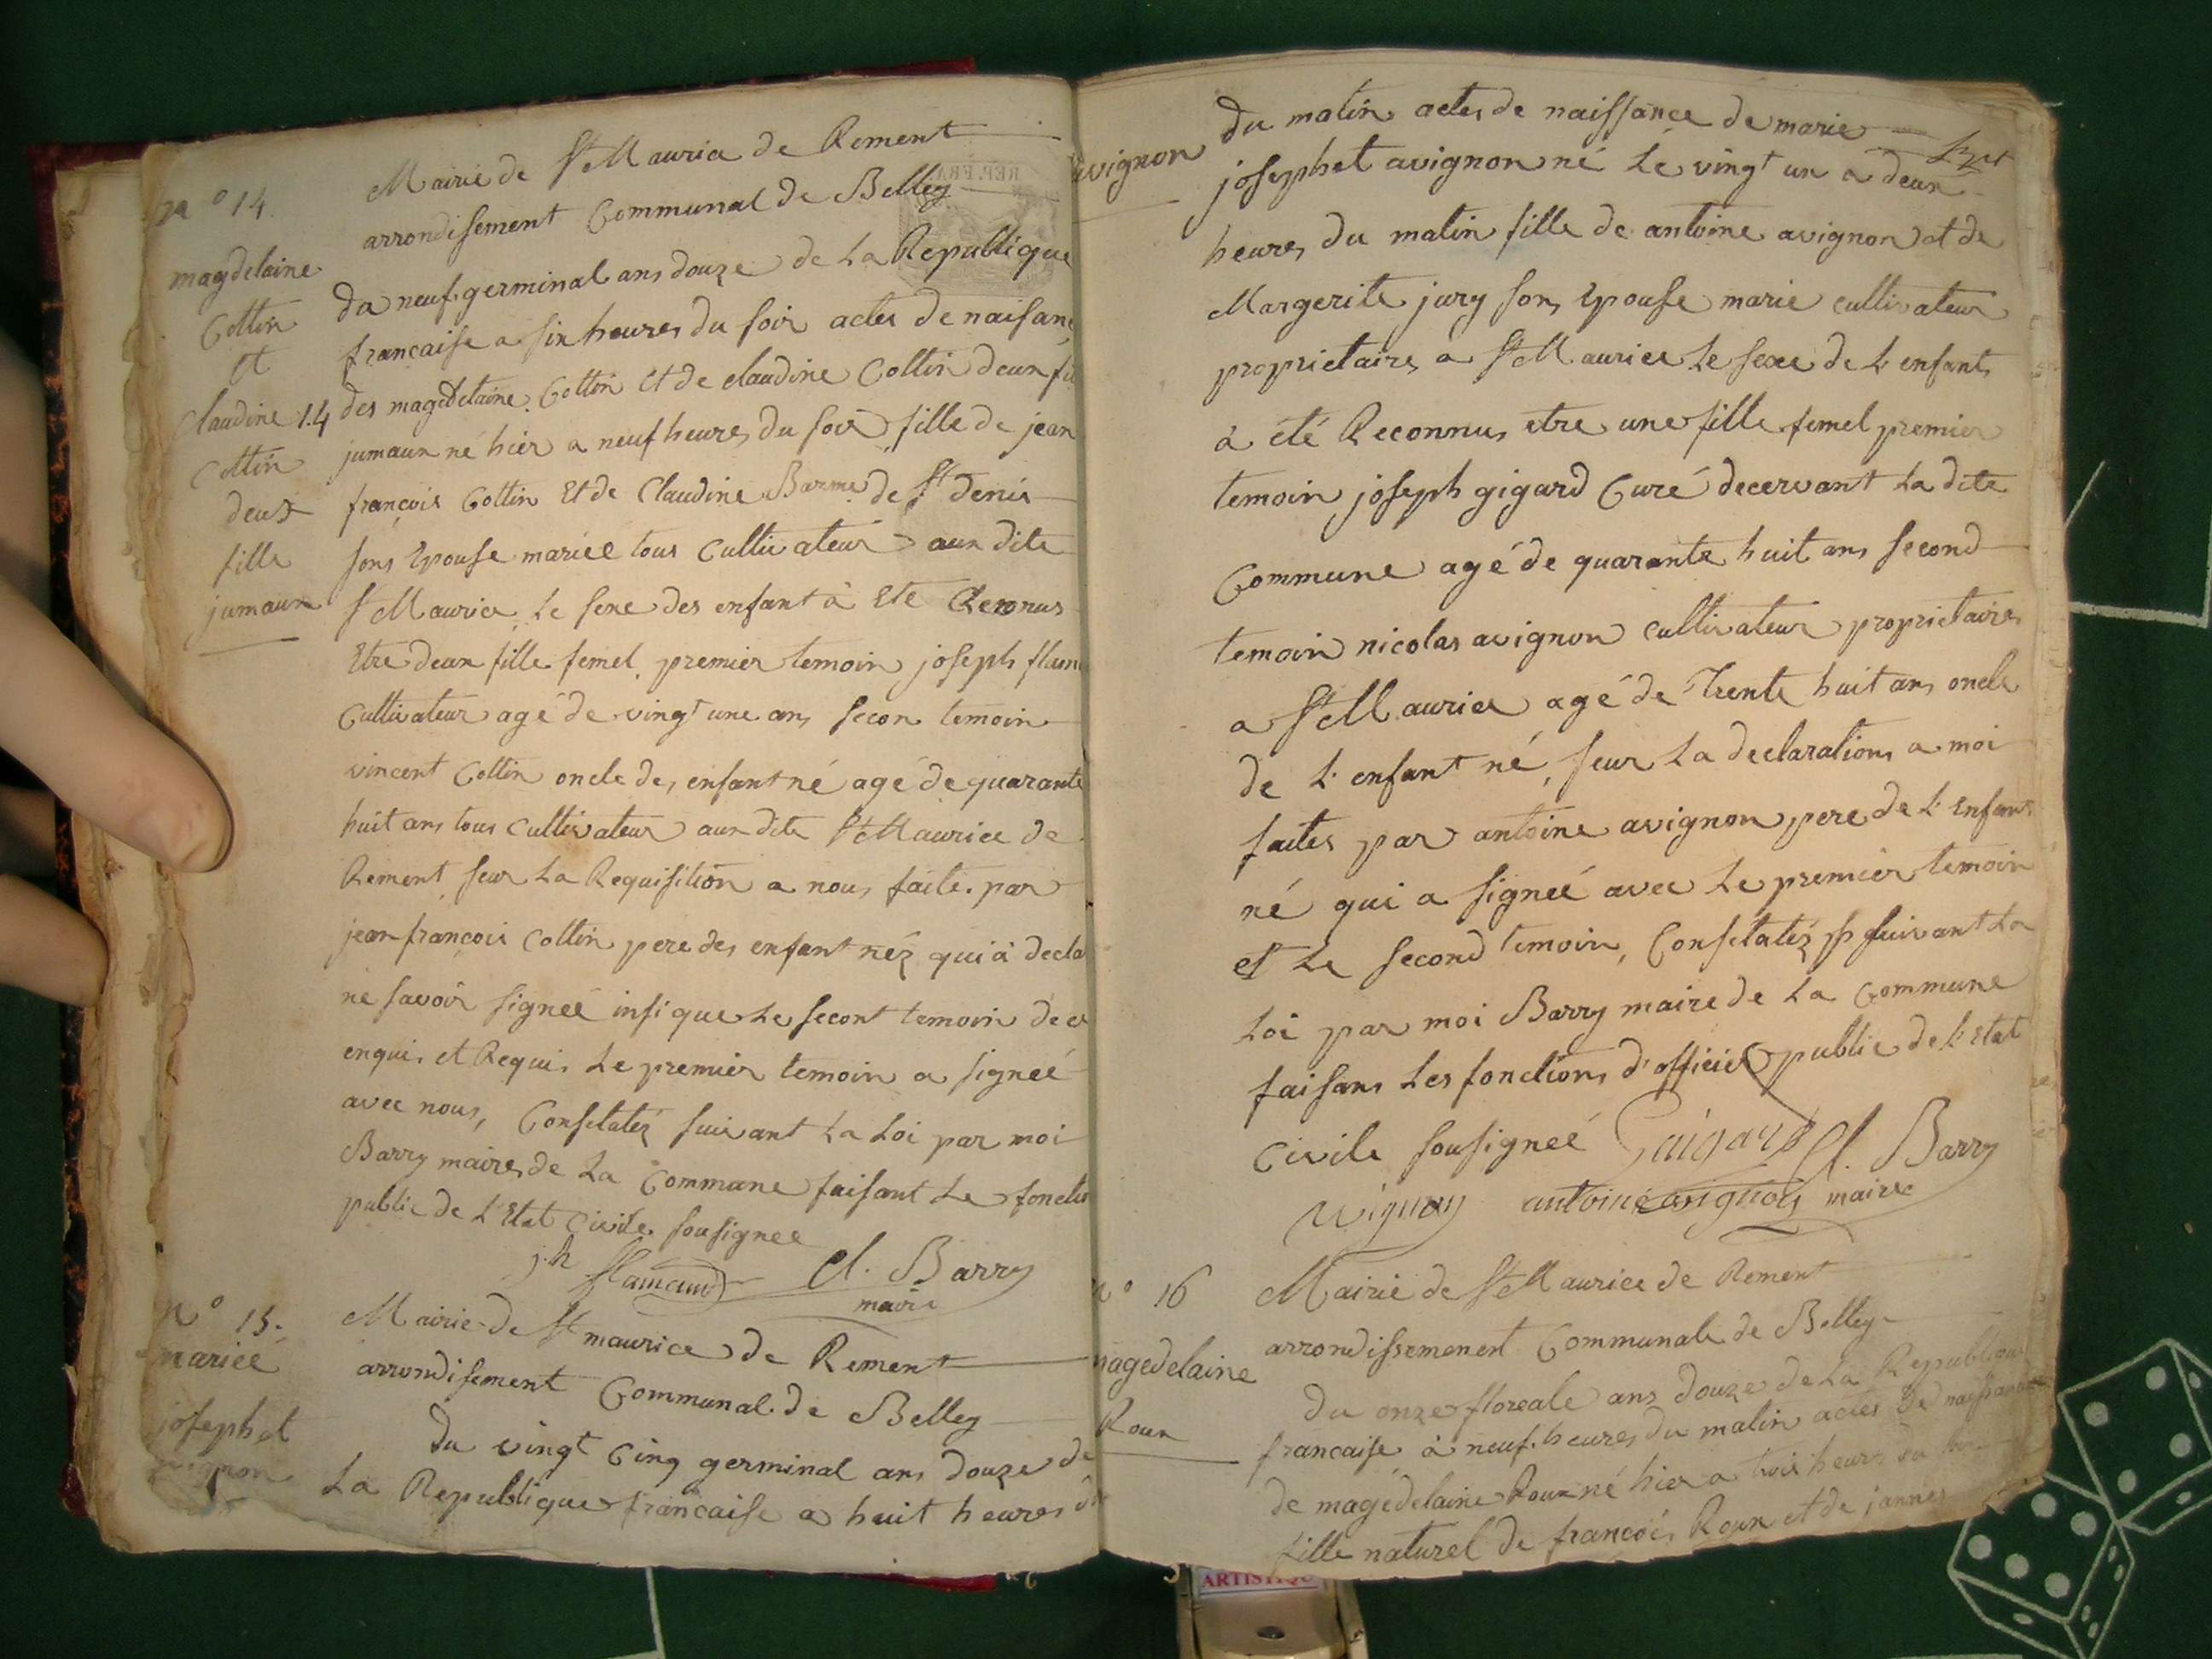 n° 14
magdelaine
Collin
et
Claudine 14
Collin
deux
fille
jumaux
Mairie de St Maurice de Rement
arrondisement Communal de Belley
REP. FRA
Du neuf germinal ans douze de La Republique
francaise a six heures du soir actes de naisanc
des magedelaine Collin Et de claudine Collin deux fi
jumaux né hier a neuf heures du soir fille de jean
françois Collin Et de Claudine Barme de St denis
sons Epouse mariée tous Cultivateur aux dite
St Maurice Le sexe des enfant à Ete Reconus
Etre deux fille femel premier temoin joseph flam
Cultivateur agé de vingt une ans secon temoin
vincent Collin oncle des enfant né agé de quarante
huit ans tous Cultivateur aux dite St Maurice de
Rement seur La Requisition a nous faite par
jean françois Collin pere des enfant néz qui à decla
ne savoir signeé insi que Le secont temoin de ce
enquis et Requis Le premier temoin a signeé
avec nous, Constatéz suivant La Loi par moi
Barry maire de La Commune faisant Le fonctio
public de L'Etat Civile sousignee
j.h flamand Cl. Barry
maire
n° 15
mariee
josephet
avignon
Mairie de St maurice de Rement
arrondisement Communal de Belley
Du vingt cinq germinal ans douze de
La Republique francaise a huit heures du
avignon
du matin actes de naissance de marie
josephet avignon né Le vingt un a deux
heures du matin fille de antoine avignon et de
Margerite jury sons Epouse marie cultivateur
proprietaires a St Maurice Le sexe de L'enfant
à été Reconnus etre une fille femel premier
temoin joseph gigard Curé decervant La dite
Commune agé de quarante huit ans second
temoin nicolas avignon cultivateur proprietaires
a St Maurice agé de Trente huit ans oncle
de L'enfant né, seur La declarations a moi
faites par antoine avignon pere de L'Enfant
né qui a signeé avec Le premier temoin
et Le second temoin, Constatéz suivant La
Loi par moi Barry maire de La Commune
faisans Les fonctions d'officier public de L'Etat
Civile sousigneé Guigard Cl. Barry
avignon antoine avignon maire
n° 16
magedelaine
Roux
Mairie de St Maurice de Rement
arrondissement Communale de Belley
Du onze floreale ans douze de La Republique
francaise à neuf heures du matin actes de naissance
de magedelaine Roux né hier a trois heures du
fille naturel de francois Roux et de jannes
ARTISTIQU